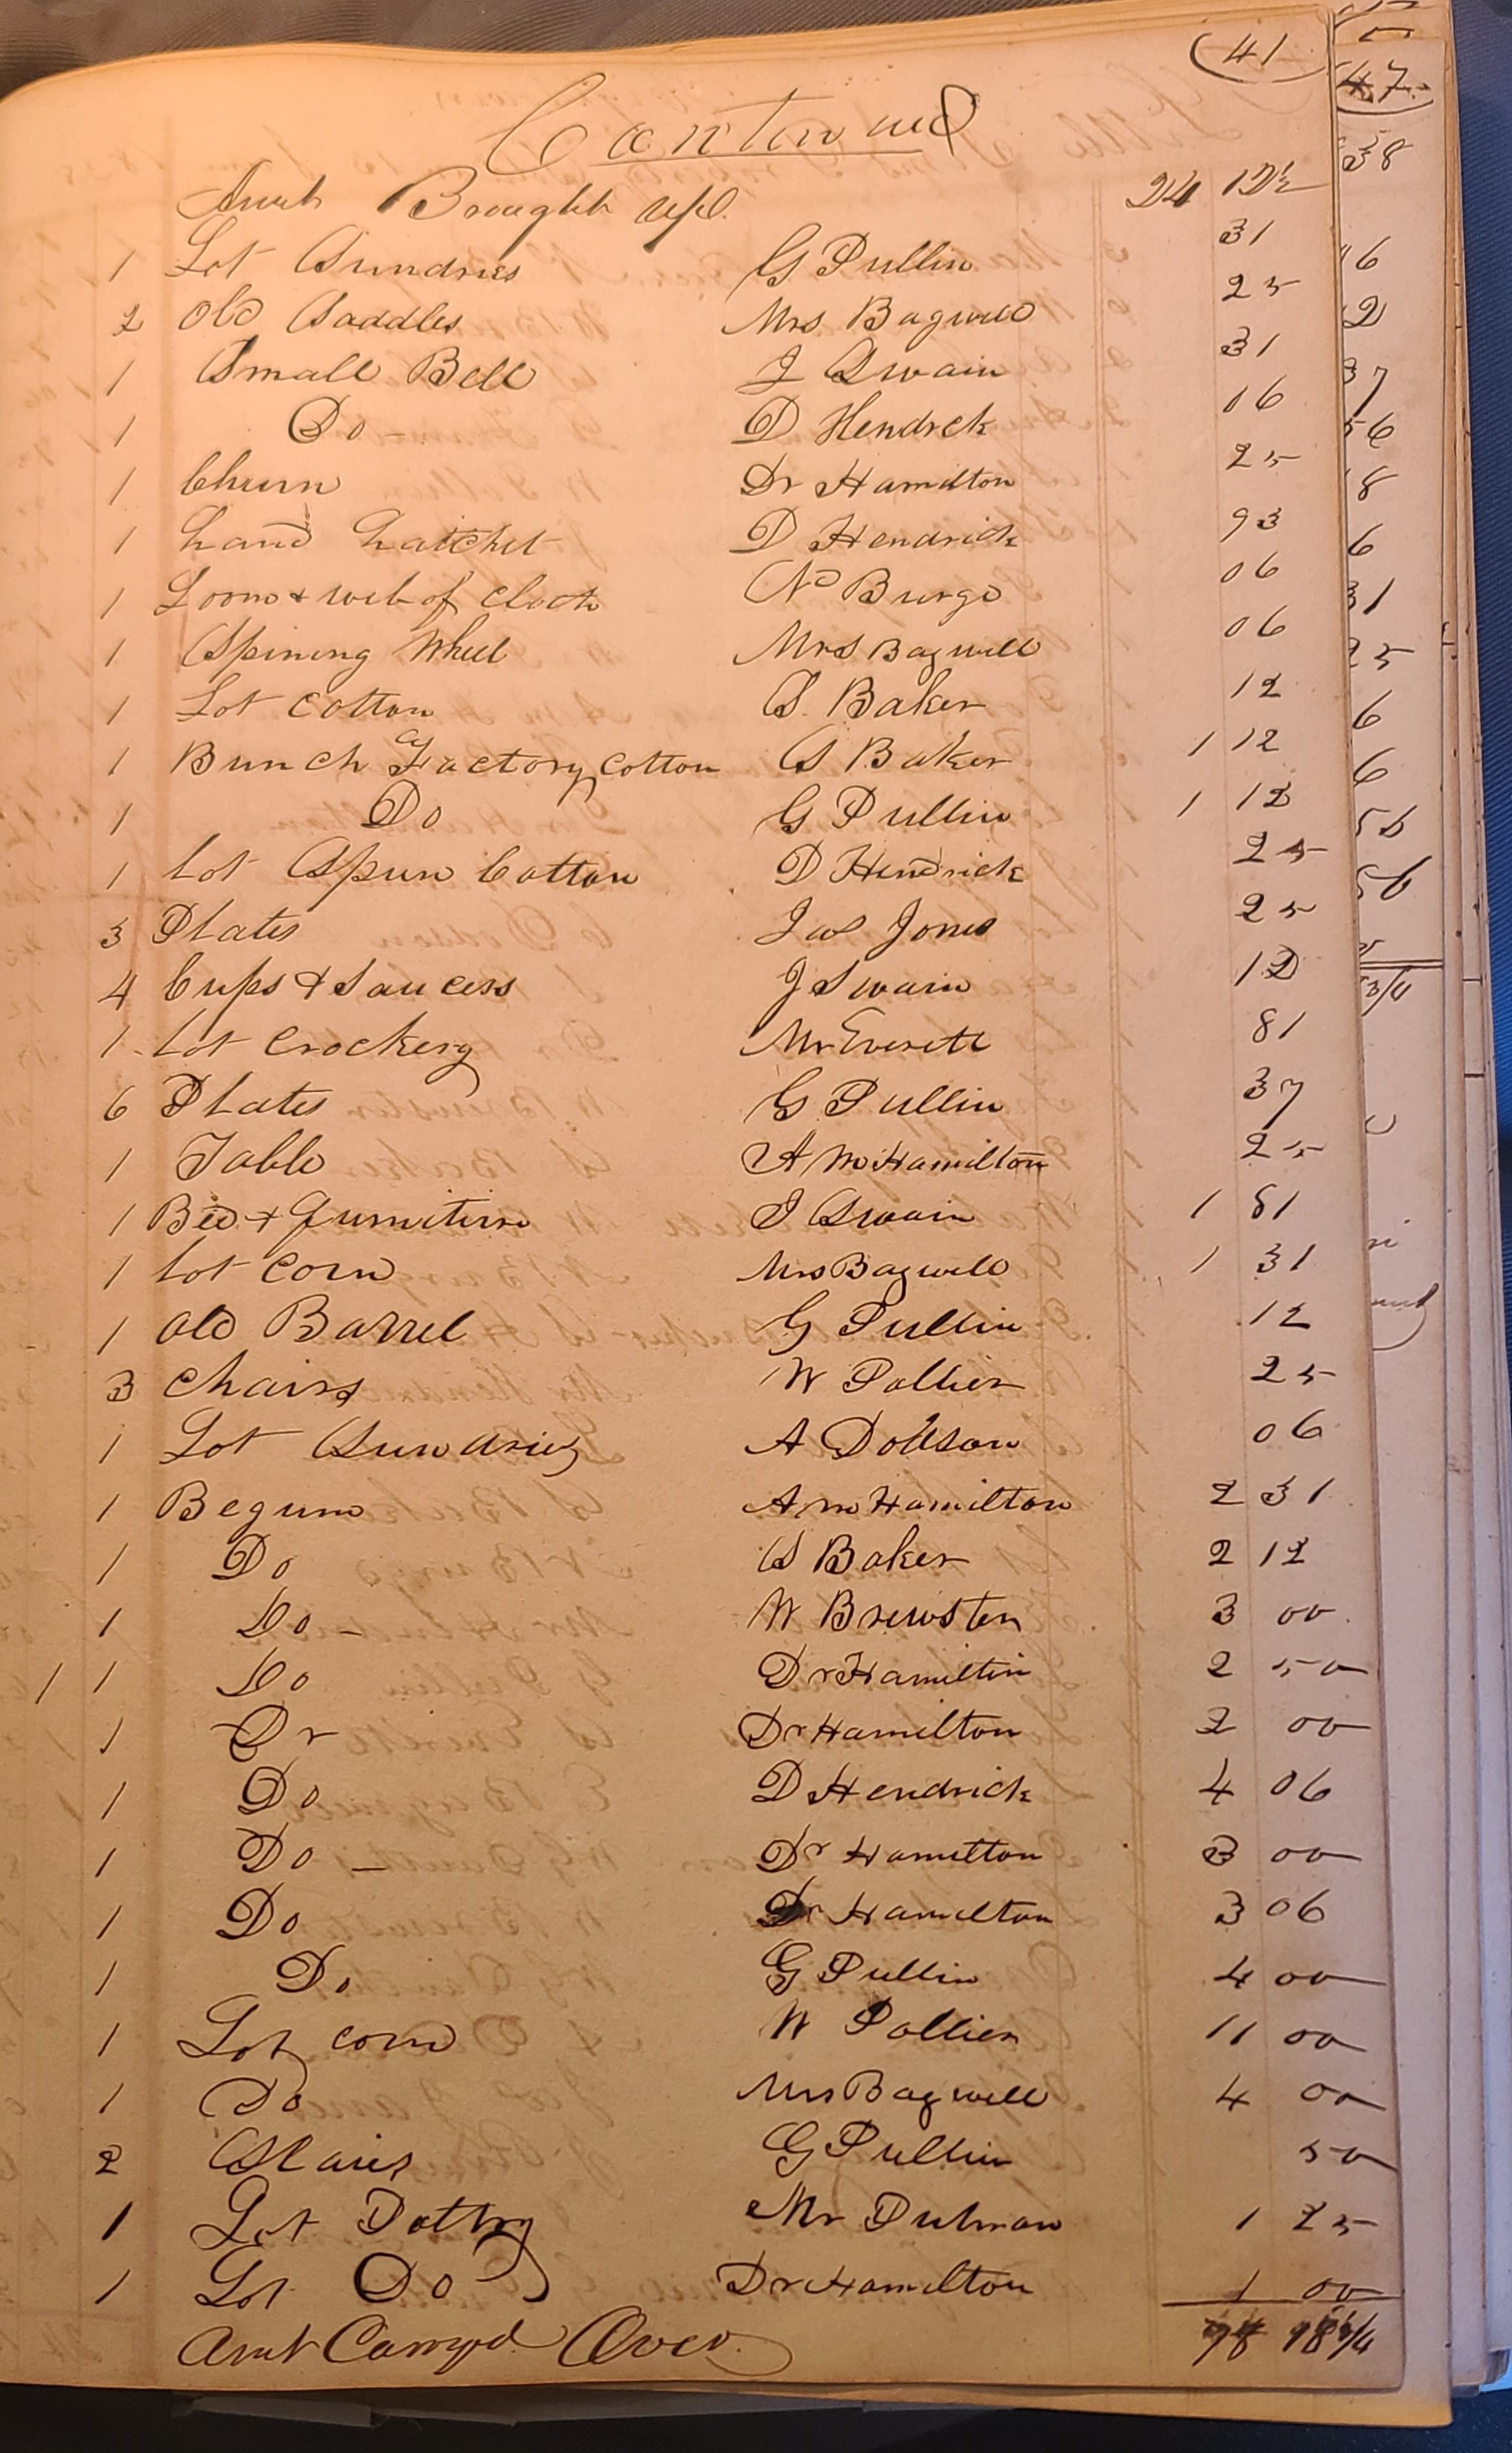 (41
Continued
Amt Brought up 24 12½
1 Lot Sundries G Pullin 31
2 Old Saddles Mrs Bagwell 25
1 Small Bell J Swain 31
1 Do - D Hendrck 06
1 Churn Dr Hamilton 25
1 hand hatchet D Hendrick 93
1 Loom & web of cloth N Burge 06
1 Spining Wheel Mrs Bagwell 06
1 Lot Cotton S. Baker 12
1 Bunch Factory Cotton S Baker 1 12
1 Do G Pullin 1 12
1 Lot Spun Cotton D Hendrick 25
3 Plates Jas Jones 25
4 Cups & Saucers J Swain 12
1 - Lot Crockery Mr Everett 81
6 Plates G Pullin 37
1 Table A M Hamilton 25
1 Bed & furniture J Swain 1 81
1 Lot Corn Mrs Bagwell 1 31
1 Old Barrel G Pullin 12
3 Chairs W Pollier 25
1 Lot Sundries A Dodson 06
1 Begum A M Hamilton 2 31
1 Do S Baker 2 12
1 Do - W Brewster 3 00
1 1 Do Dr Hamilton 2 50
1 Dr Hamilton 2 00
1 Do D Hendrick 4 06
1 Do - Dr Hamilton 3 00
1 Do Dr Hamilton 3 06
1 Do G Pullin 4 00
1 Lot corn W Pollier 11 00
1 Do Mrs Bagwell 4 00
2 G Pullin 50
1 Lot Pottry Mr Putman 1 25
1 Lot Do Dr Hamilton 1 00
Amt Carryd Over 78 98¾
47
38
16
37
56
8
6
31
25
6
6
56
56